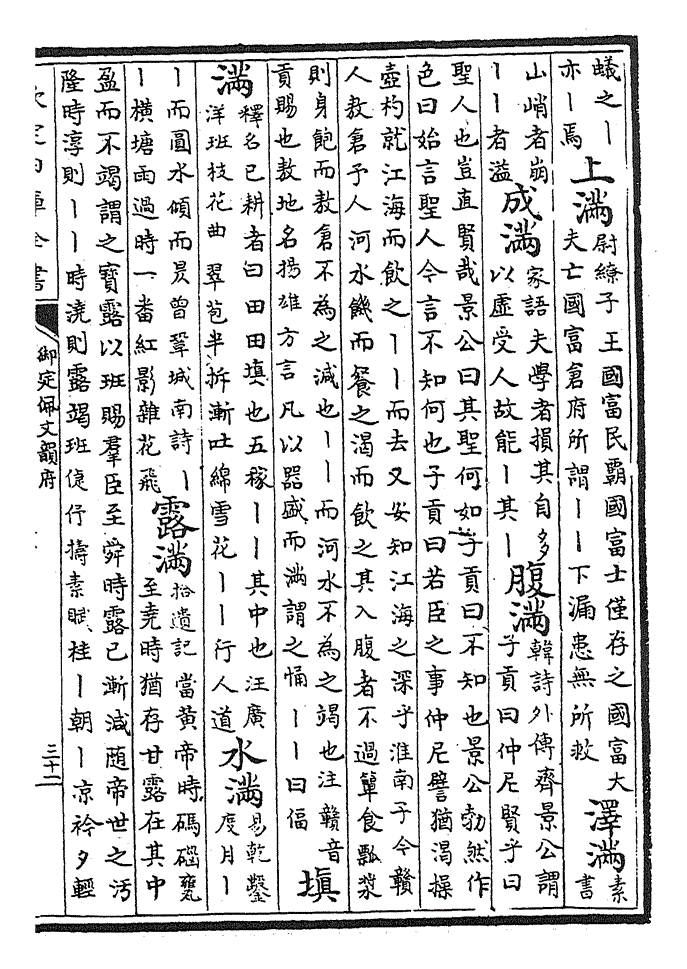 蟻之丨
亦丨焉
上滿
尉繚子 王國富民霸國富士僅存之國富大
夫亡國富倉府所謂丨丨下漏患無所救
澤滿
素
書
山峭者崩
丨丨者溢
成滿
家語夫學者損其自多
以虛受人故能丨其丨
腹滿
韓詩外傳齊景公謂
子貢曰仲尼賢乎曰
聖人也豈直賢哉景公曰其聖何如子貢曰不知也景公勃然作
色曰始言聖人今言不知何也子貢曰若臣之事仲尼譬猶渴操
壺杓就江海而飲之丨丨而去又安知江海之深乎淮南子今贛
人敖倉予人河水饑而餐之渴而飲之其入腹者不過簞食瓢漿
則身飽而敖倉不為之減也丨丨而河水不為之竭也注贛音
貢賜也敖地名揚雄方言凡以器盛而滿謂之悀丨丨曰偪
填
滿
釋名已耕者曰田田填也五稼丨丨其中也汪廣
洋班枝花曲 翠苞半拆漸吐綿雪花丨丨行人道
水滿
易乾鑿
度月丨
丨而圓水傾而昃曾鞏城南詩丨
丨橫塘雨過時一番紅影雜花飛
露滿
拾遺記當黃帝時碼碯甕
至堯時猶存甘露在其中
盈而不竭謂之寶露以班賜羣臣至舜時露已漸減隨帝世之汚
隆時淳則丨丨時澆則露竭班倢伃擣素賦桂丨朝丨凉衿夕輕
欽定四庫全書
御定佩文韻府
三十二